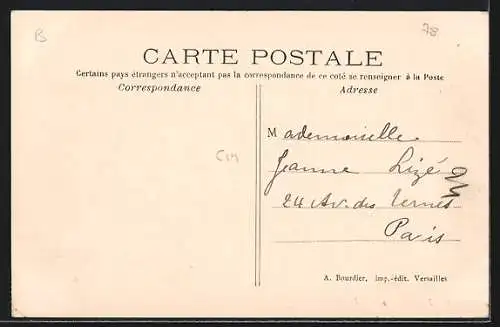 B
78
CARTE POSTALE
Certains pays étrangers n'acceptant pas la correspondance de ce coté se renseigner à la Poste
Correspondance
Adresse
Mademoiselle
Jeanne Lizé
24 Av. des Ternes
Paris
A. Bourdier, imp.-édit. Versailles